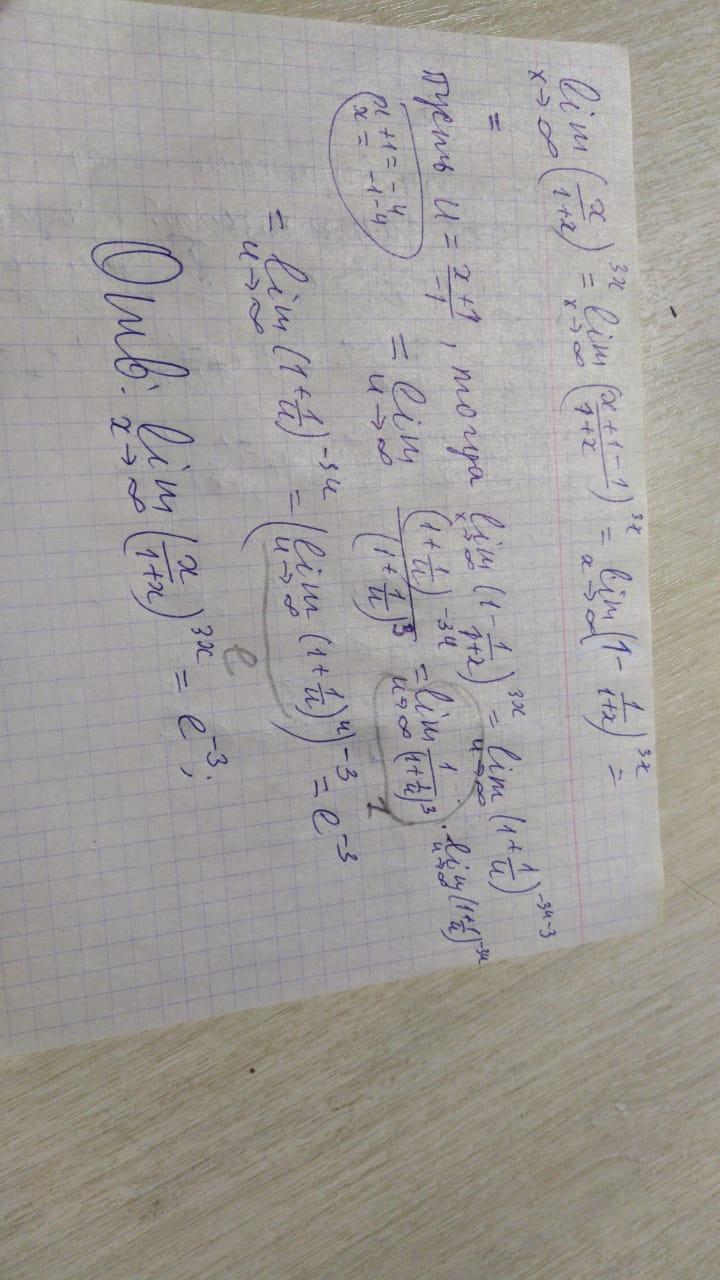 lim x→∞ (x/(1+x))^3x = lim x→∞ ((x+1-1)/(1+x))^3x = lim x→∞ (1 - 1/(1+x))^3x =
=
Пусть u = (x+1)/-1, тогда lim x→∞ (1 - 1/(1+x))^3x = lim u→∞ (1+1/u)^-3u-3
x+1 = -u
x = -1-u
= lim u→∞ (1+1/u)^-3u / (1+1/u)^3 = lim u→∞ 1/(1+1/u)^3 · lim u→∞ (1+1/u)^-3u
1
= lim u→∞ (1+1/u)^-3u = (lim u→∞ (1+1/u)^u)^-3 = e^-3
e
Отв: lim x→∞ (x/(1+x))^3x = e^-3;